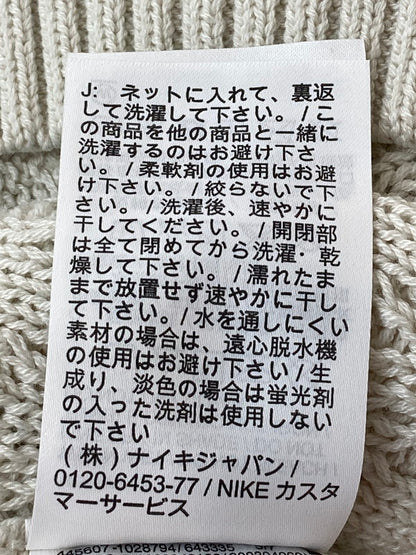 J: ネットに入れて、裏返
して洗濯して下さい。/ こ
の商品を他の商品と一緒に
洗濯するのはお避け下さ
い。/ 柔軟剤の使用はお避
け下さい。/ 絞らないで下
さい。/ 洗濯後、速やかに
干してください。/ 開閉部
は全て閉めてから洗濯・乾
燥して下さい。/ 濡れたま
まで放置せず速やかに干し
て下さい。/ 水を通しにくい
素材の場合は、遠心脱水機
の使用はお避け下さい / 生
成り、淡色の場合は蛍光剤
の入った洗剤は使用しない
で下さい
(株) ナイキジャパン /
0120-6453-77 / NIKE カスタ
マーサービス
445607 -1028794/ 643335